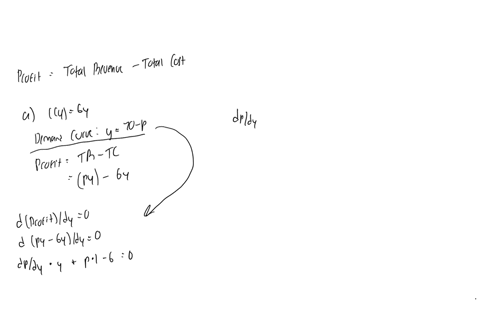 Profit = Total Revenue - Total Cost
a) C(y) = 6y
Demand Curve: y = 70-p
Profit = TR - TC
= (py) - 6y
dp/dy
d (Profit)/dy = 0
d (py - 6y)/dy = 0
dp/dy • y + p•1 - 6 = 0